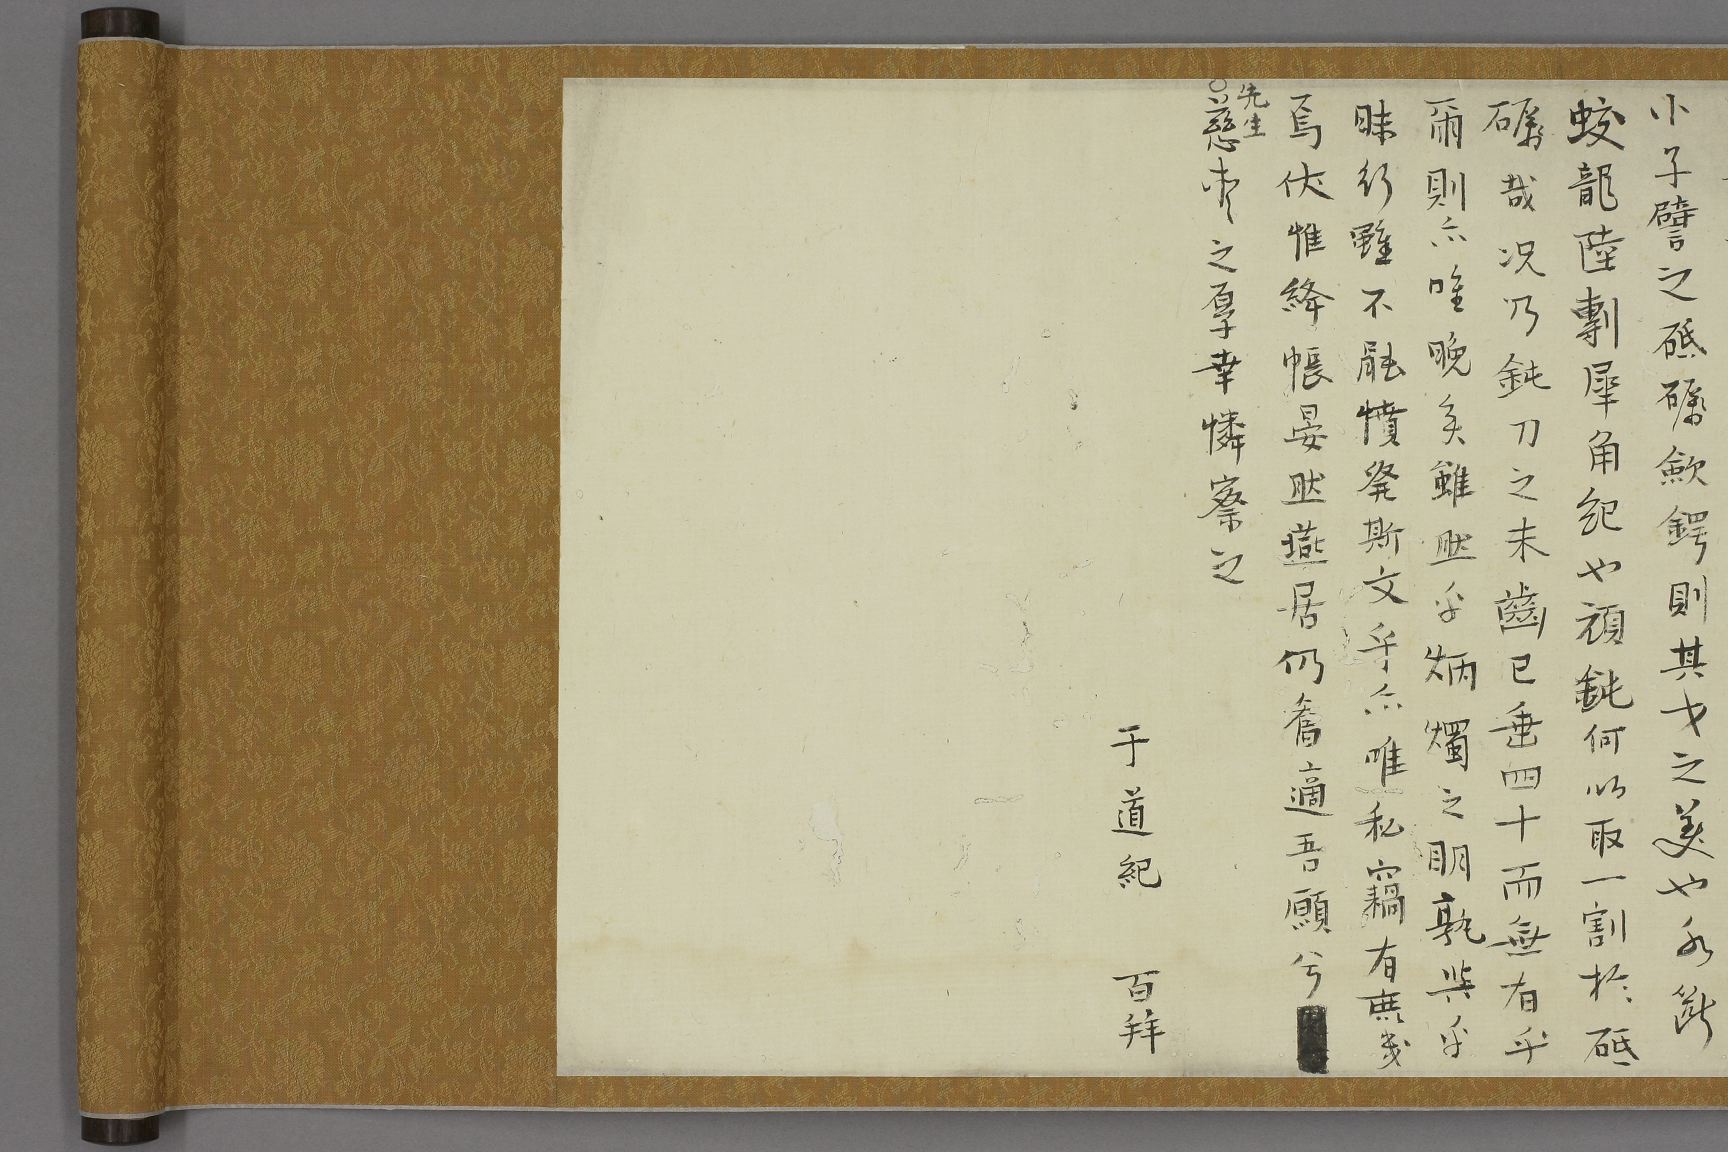 小子譬之砥礪歟鍔則其才之美也水斷
蛟龍陸剸犀角紀也頑鈍何以取一割於砥
礪哉况乃鈍刀之未齒已垂四十而無有乎
爾則亦唯晩矣雖然乎炳燭之明孰與乎
昧行雖不能憤發斯文乎亦唯私竊有庶幾
焉伏惟絳帳晏然燕居仍舊適吾願兮
先生
慈恵之厚幸憐察之
于道紀 百拜